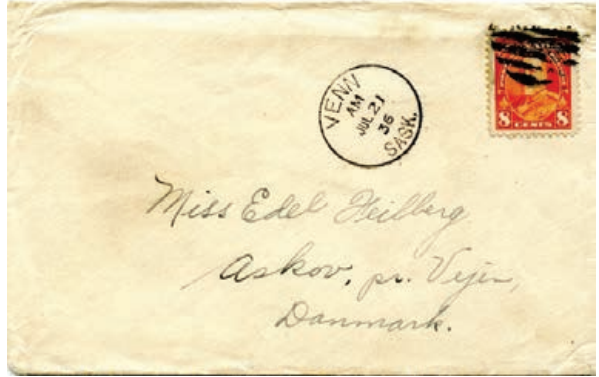 VENN
AM
JUL 21
36
SASK.
8 CENTS 8
Miss Edel Heilberg
Askov, pr. Vejen,
Danmark.